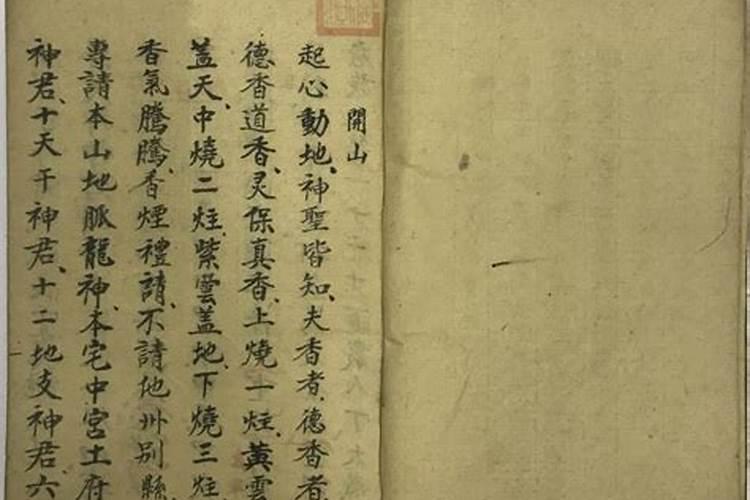 開山
起心動地、神聖皆知、夫香者、德香者
德香道香、灵保真香、上燒一炷、黃雲
蓋天、中燒二炷、紫雲蓋地、下燒三炷
香氣騰騰、香煙禮請、不請他州别縣
專請本山地脈龍神、本宅中宮土府
神君、十天干神君、十二地支神君、六